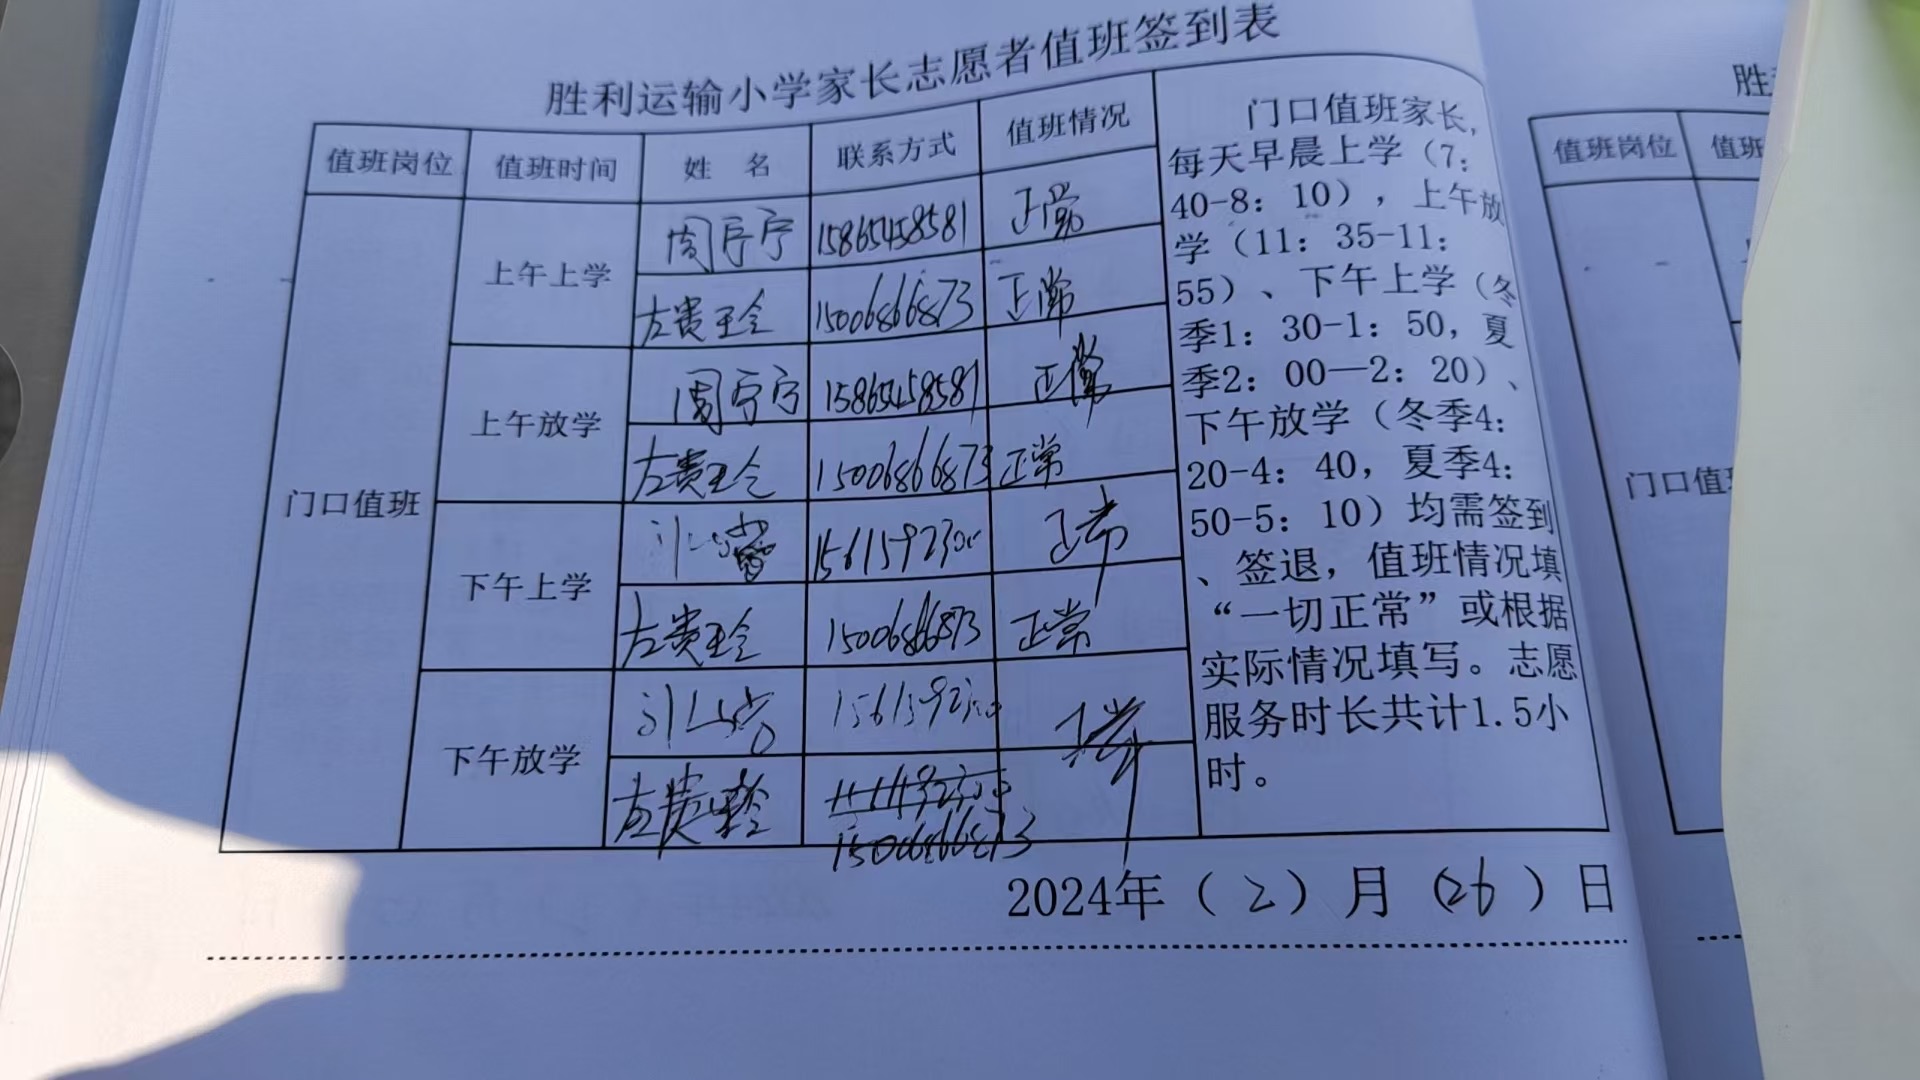 胜利运输小学家长志愿者值班签到表
值班岗位 值班时间 姓 名 联系方式 值班情况
门口值班
上午上学
周宁宁 15865458581 正常
左贵玲 15006866873 正常
上午放学
周宁宁 15865458581 正常
左贵玲 15006866873 正常
下午上学
1561592300 正常
左贵玲 15006866873 正常
下午放学
正常
左贵玲
15006866873
门口值班家长,
每天早晨上学（7:
40-8: 10），上午放
学（11: 35-11:
55）、下午上学（冬
季1: 30-1: 50, 夏
季2: 00—2: 20）、
下午放学（冬季4:
20-4: 40, 夏季4:
50-5: 10）均需签到
、签退, 值班情况填
“一切正常”或根据
实际情况填写。志愿
服务时长共计1.5小
时。
2024年（2）月（26）日
胜
值班岗位 值班
门口值